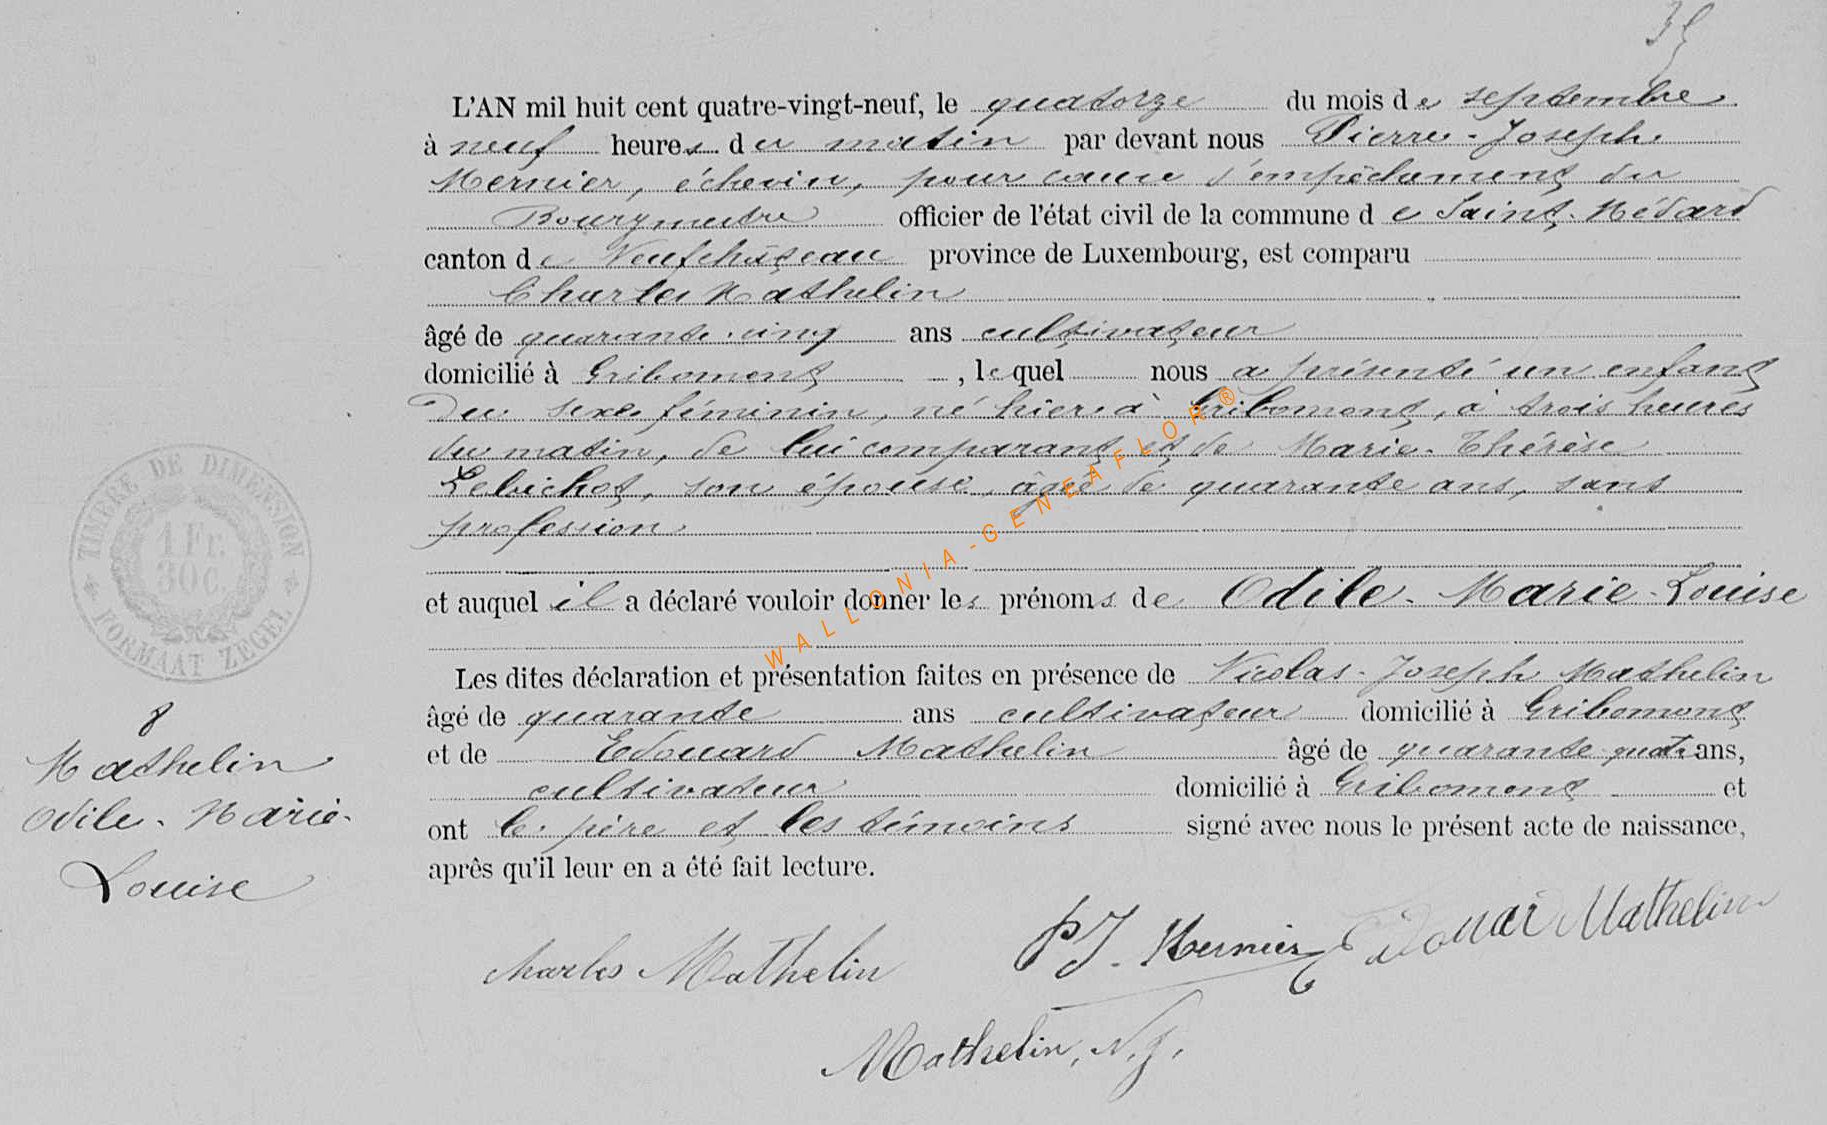 35
L'AN mil huit cent quatre-vingt-neuf, le quatorze du mois de septembre
à neuf heures du matin par devant nous Pierre-Joseph
Mernier, échevin, pour cause d'empêchement du
Bourgmestre officier de l'état civil de la commune de Saint-Médard
canton de Neufchâteau province de Luxembourg, est comparu
Charles Mathelin
âgé de quarante-cinq ans cultivateur
domicilié à Gribomont, lequel nous a présenté un enfant
du sexe féminin, né hier à Gribomont, à trois heures
du matin, de lui comparant et de Marie-Thérèse
Lebichot, son épouse, âgée de quarante ans, sans
profession
et auquel il a déclaré vouloir donner les prénoms de Odile-Marie-Louise
Les dites déclaration et présentation faites en présence de Nicolas-Joseph Mathelin
âgé de quarante ans cultivateur domicilié à Gribomont
et de Edouard Mathelin âgé de quarante-quatre ans,
cultivateur domicilié à Gribomont et
ont le père et les témoins signé avec nous le présent acte de naissance,
après qu'il leur en a été fait lecture.
Charles Mathelin PJ. Mernier Edouard Mathelin
Mathelin, N.J.
TIMBRE DE DIMENSION
1 Fr.
30 C.
FORMAAT ZEGEL
8
Mathelin
Odile-Marie-
Louise
WALLONIA-GENEAFLOR®